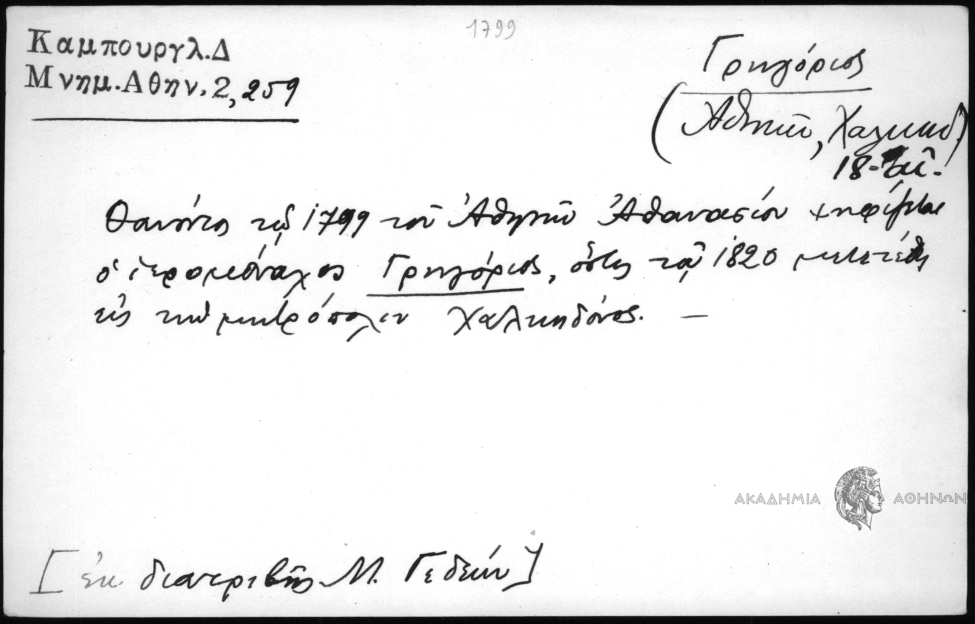 1799
Καμπουργλ.Δ
Μνημ.Αθην.2,259
Γρηγόριος
(Ἀθηνῶν, Χαλκηδ)
18-αἰ.
Θανόντος τῷ 1799 τοῦ Ἀθηνῶν Ἀθανασίου ψηφίζεται
ὁ ἱερομόναχος Γρηγόριος, ὅστις τῷ 1820 μετετέθη
εἰς τὴν μητρόπολιν Χαλκηδόνος. —
ΑΚΑΔΗΜΙΑ ΑΘΗΝΩΝ
[ἐκ διατριβῆς Μ. Γεδεών]